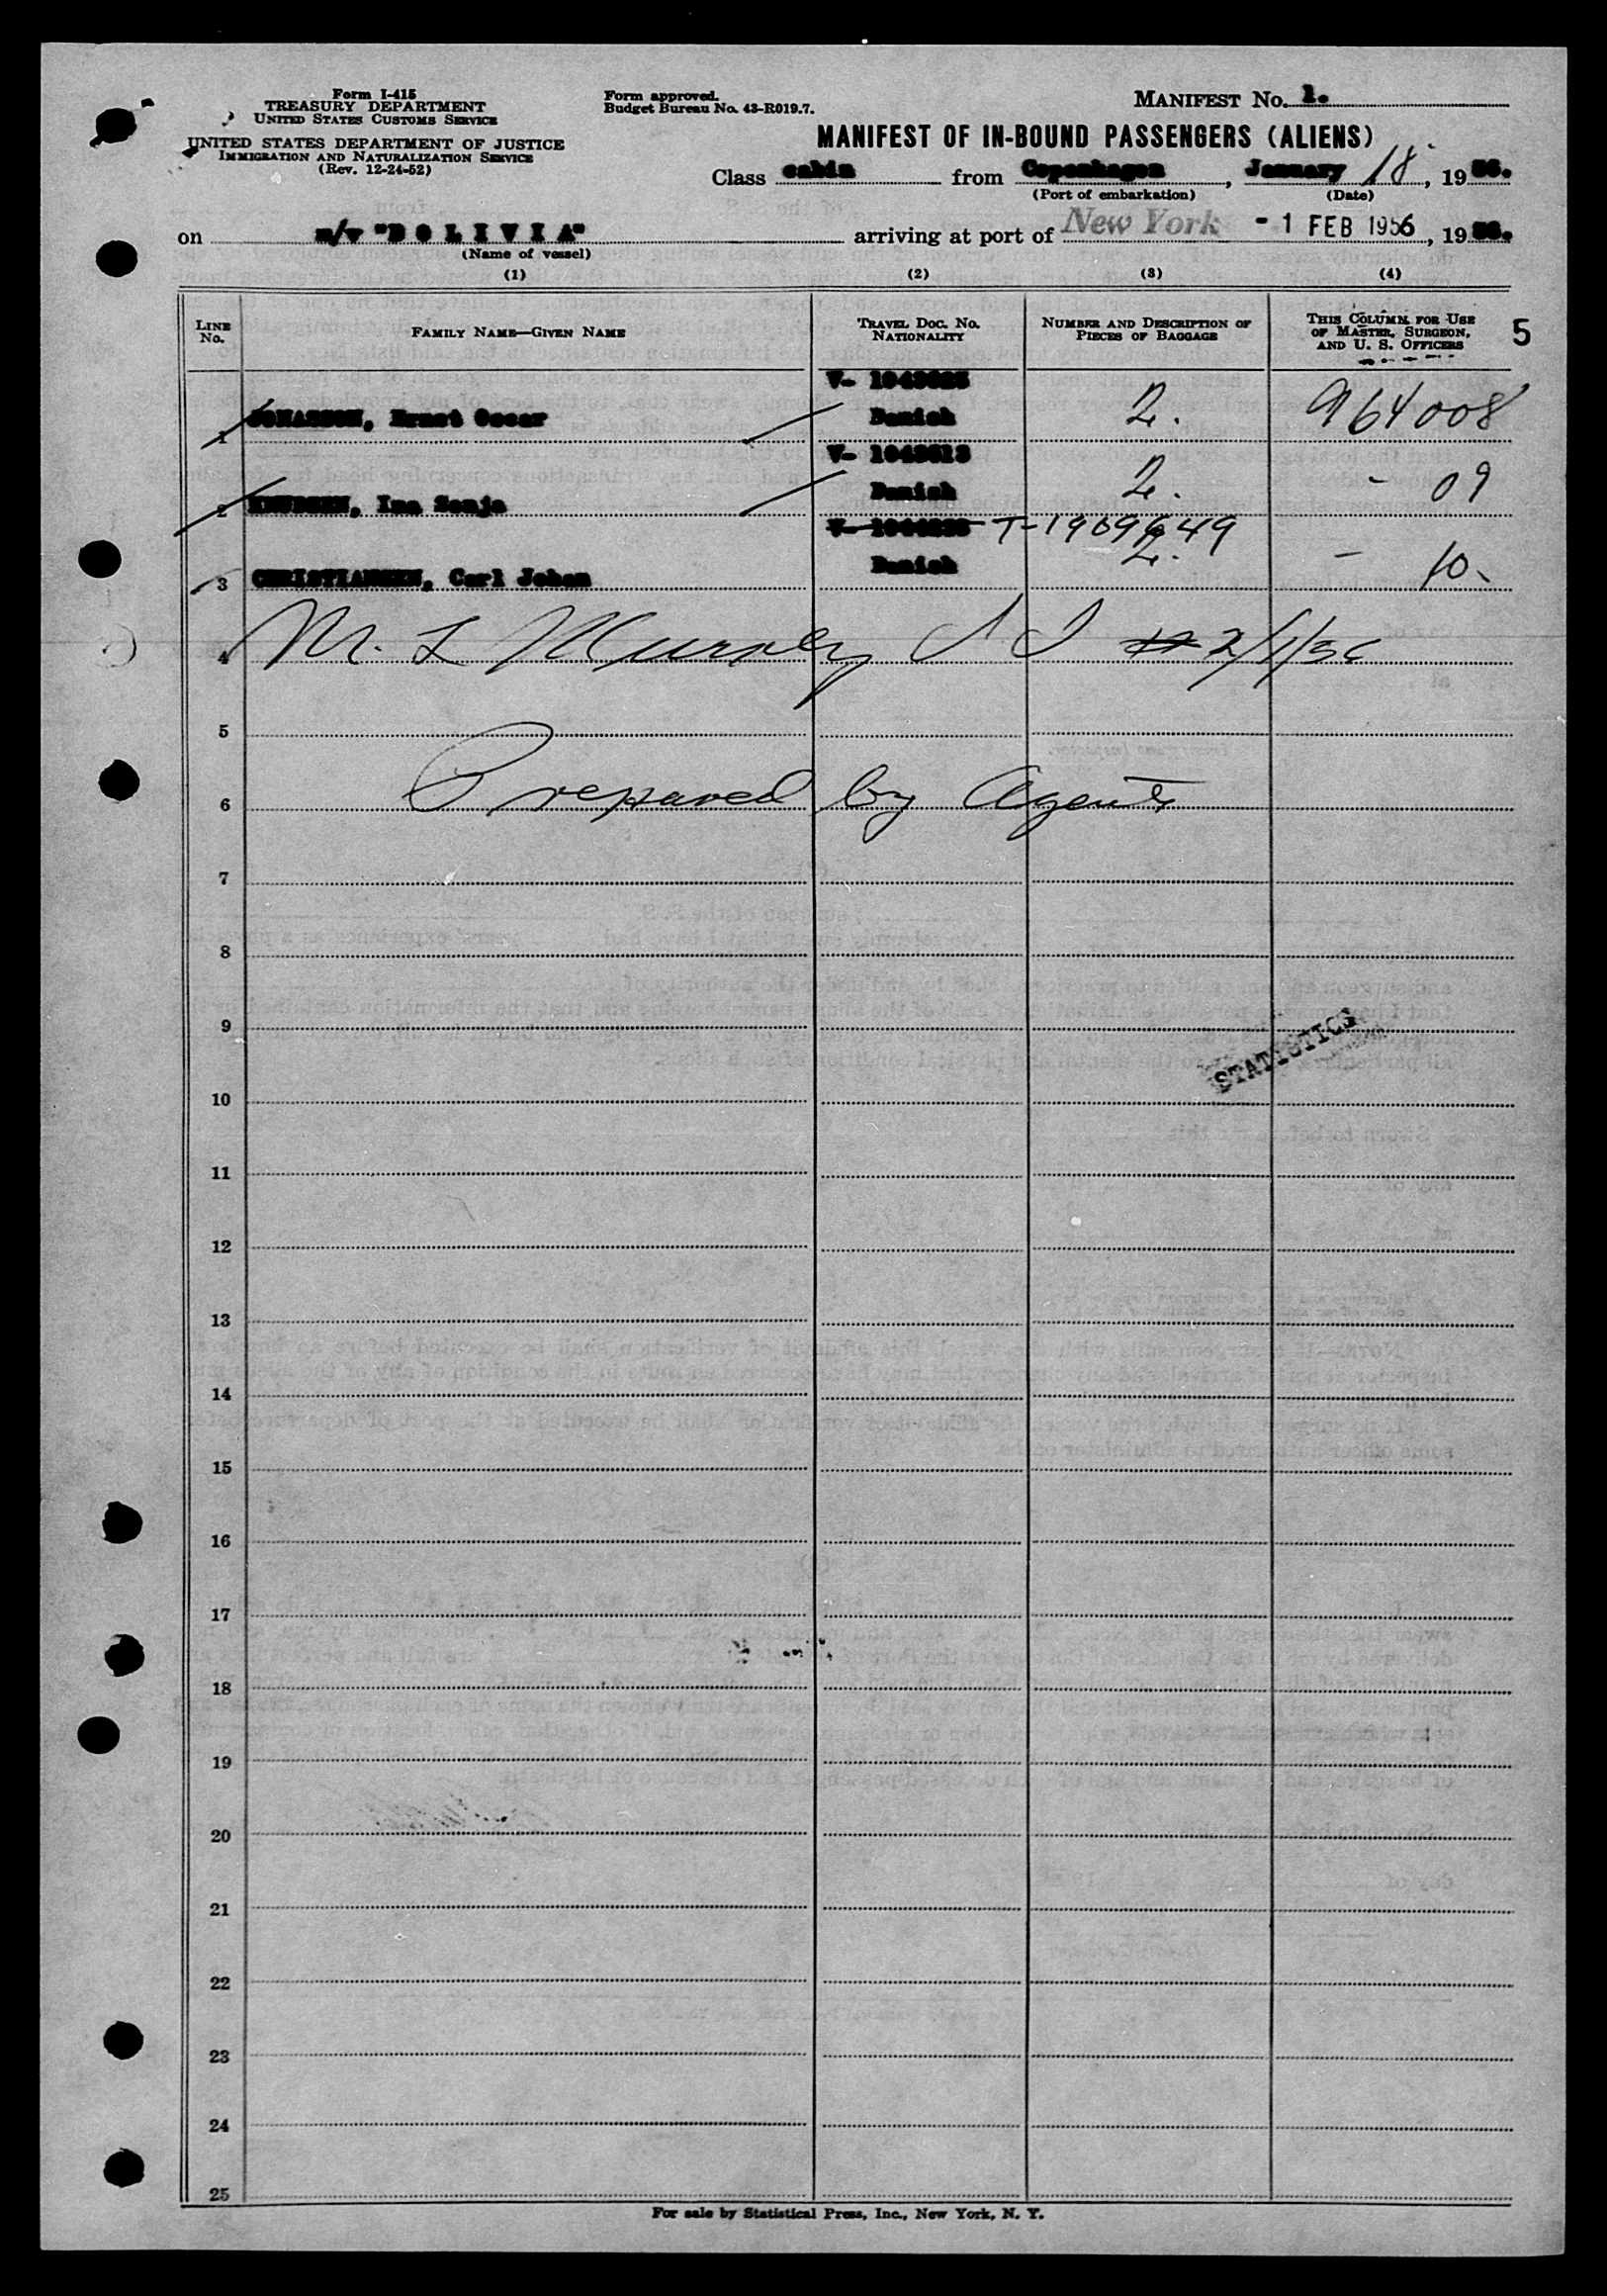 Form I-415
TREASURY DEPARTMENT
UNITED STATES CUSTOMS SERVICE
UNITED STATES DEPARTMENT OF JUSTICE
IMMIGRATION AND NATURALIZATION SERVICE
(Rev. 12-24-52)
Form approved.
Budget Bureau No. 43-R019.7.
MANIFEST No. 1.
MANIFEST OF IN-BOUND PASSENGERS (ALIENS)
Class cabin from Copenhagen, January 18, 1956.
(Port of embarkation) (Date)
on m/v "BOLIVIA" arriving at port of New York -1 FEB 1956, 1956.
(Name of vessel)
(1) (2) (3) (4)
LINE No. FAMILY NAME—GIVEN NAME TRAVEL DOC. No. NATIONALITY NUMBER AND DESCRIPTION OF PIECES OF BAGGAGE THIS COLUMN FOR USE OF MASTER, SURGEON, AND U. S. OFFICERS 5
V-
1 Ernst Oscar Danish 2. 964008
V-
2 KNUDSEN, Ina Sonja Danish 2. - 09
V- T-1909649
3 CHRISTIANSEN, Carl Johan Danish 2. - 10.
4 M. L 2/1/56
5
6 Prepared by Agents
7
8
9
STATISTICS
10
11
12
13
14
15
16
17
18
19
20
21
22
23
24
25
For sale by Statistical Press, Inc., New York, N. Y.